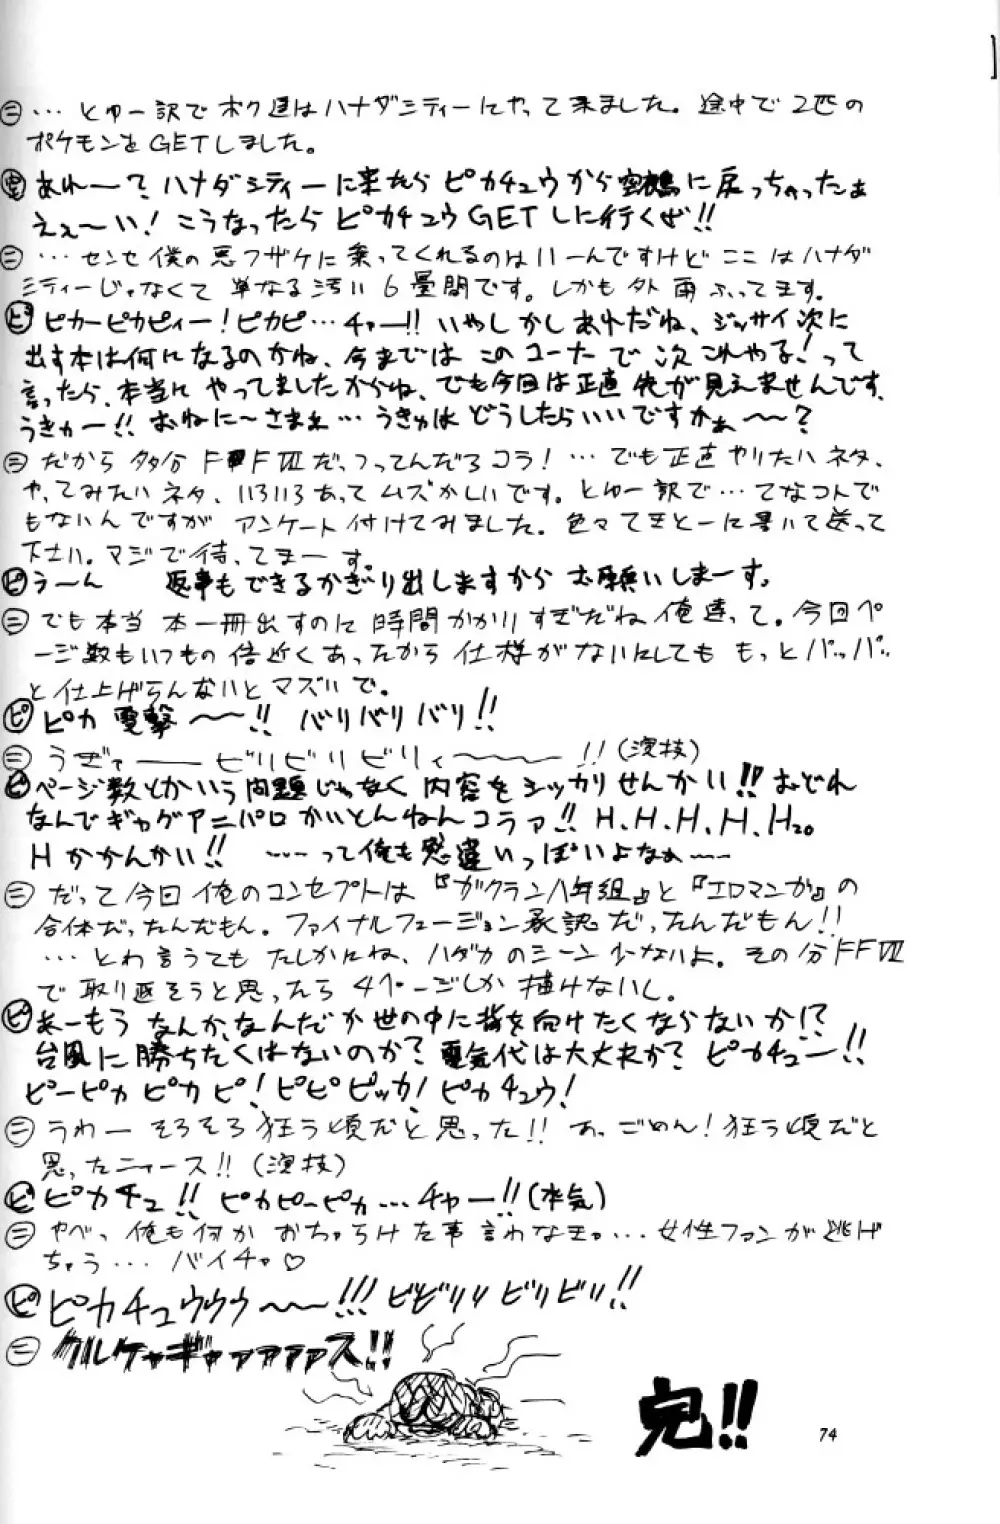 ㊁…とゆー訳でボク達はハナダシティーにやって来ました。途中で2匹の
ポケモンをGETしました。
あれ〜?ハナダシティーに来たらピカチュウから空鶴に戻っちゃったぁ
えぇ〜い!こうなったらピカチュウGETしに行くぜ!!
㊁…センセ僕の悪フザケに乗ってくれるのはいーんですけどここはハナダ
シティーじゃなくて単なる汚い6畳間です。しかも外雨ふってます。
ピ ピカーピカピィー!ピカピ…チャー!!いやしかしあれだね、ジッサイ次に
出す本は何になるのかね、今まではこのコーナーで次これやる!って
言ったら、本当にやってましたからね、でも今回は正直先が見えませんです、
うきゅー!!おねに〜さまぇ…うきゅはどうしたらいいですかぁ〜〜?
㊂だから多分FFⅦだっつってんだろコラ!…でも正直やりたいネタ、
やってみたいネタ、いろいろあってムズかしいです。とゆー訳で…てなコトで
もないんですがアンケート付けてみました。色々てきとーに書いて送って
下さい。マジで待ってまーす。
ピ うーん 返事もできるかぎり出しますからお願いしまーす。
㊁でも本当本一冊出すのに時間かかりすぎだね俺達って。今回ペ
ージ数もいつもの倍近くあったから仕様がないにしてももっとパッパッ
と仕上げらんないとマズいで。
ピ ピカ電撃〜〜!!バリバリバリ!!
㊂うぎゃ――ビリビリビリィ〜〜〜!!(演技)
ピ ページ数とかいう問題じゃなく内容をシッカリせんかい!!おどれ
なんでギャグアニパロかいとんねんコラァ!!H.H.H.H.H20
Hかかんかい!! ……って俺も勘違いっぽいよなぁ〜〜
㊂だって今回俺のコンセプトは『ガクラン八年組』と『エロマンガ』の
合体だったんだもん。ファイナルフュージョン承認だったんだもん!!
…とわ言うてもたしかにね、ハダカのシーン少ないよ。その分FFⅦ
で取り返そうと思ったら4ページしか描けないし。
ピ あーもうなんか、なんだか世の中に背を向けたくならないか!?
台風に勝ちたくはないのか?電気代は大丈夫か?ピカチュー!!
ピーピカピカピ!ピピピッカ!ピカチュウ!
㊁うわーそろそろ狂う頃だと思った!!あ、ごめん!狂う頃だと
思ったニャース!!(演技)
ピ ピカチュ!!ピカピーピカ…チャー!!(本気)
㊁やべっ俺も何かおちゃらけた事言わなきゃ…女性ファンが逃げ
ちゃう…バイチャ♡
ピ ピカチュウウウ〜〜!!!ビビリリビリビリ!!
㊁クルケャギャァァァァァス!!
完!!
74